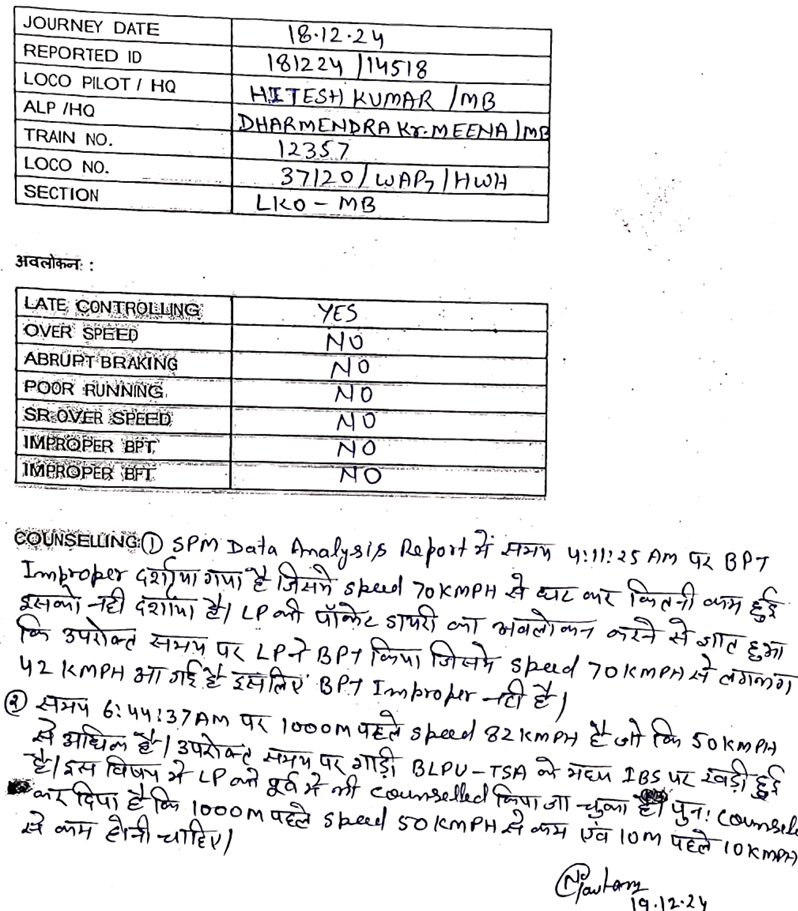 JOURNEY DATE 18.12.24
REPORTED ID 181224/14518
LOCO PILOT / HQ HITESH KUMAR /MB
ALP /HQ DHARMENDRA Kr. MEENA/MB
TRAIN NO. 12357
LOCO NO. 37120/WAP7/HWH
SECTION LKO - MB
अवलोकन :
LATE CONTROLLING YES
OVER SPEED NO
ABRUPT BRAKING NO
POOR RUNNING NO
SR OVER SPEED NO
IMPROPER BPT NO
IMPROPER BFT NO
COUNSELLING: ① SPM Data Analysis Report में समय 4:11:25 AM पर BPT
Improper दर्शाया गया है जिसमे speed 70 KMPH से घट कर कितनी कम हुई
इसको नही दर्शाया है। LP की पॉकेट डायरी का अवलोकन करने से ज्ञात हुआ
कि उपरोक्त समय पर LP ने BPT किया जिसमे speed 70 KMPH से लगभग
42 KMPH आ गई है इसलिए BPT Improper नही है।
② समय 6:44:37 AM पर 1000 M पहले speed 82 KMPH है जो कि 50 KMPH
से अधिक है। उपरोक्त समय पर गाड़ी BLPU-TSA के मध्य IBS पर खड़ी हुई
है। इस विषय मे LP को पूर्व मे भी counselled किया जा चुका है। पुनः counselled
कर दिया है कि 1000 M पहले speed 50 KMPH से कम एवं 10 M पहले 10 KMPH
से कम होनी चाहिए।
19.12.24